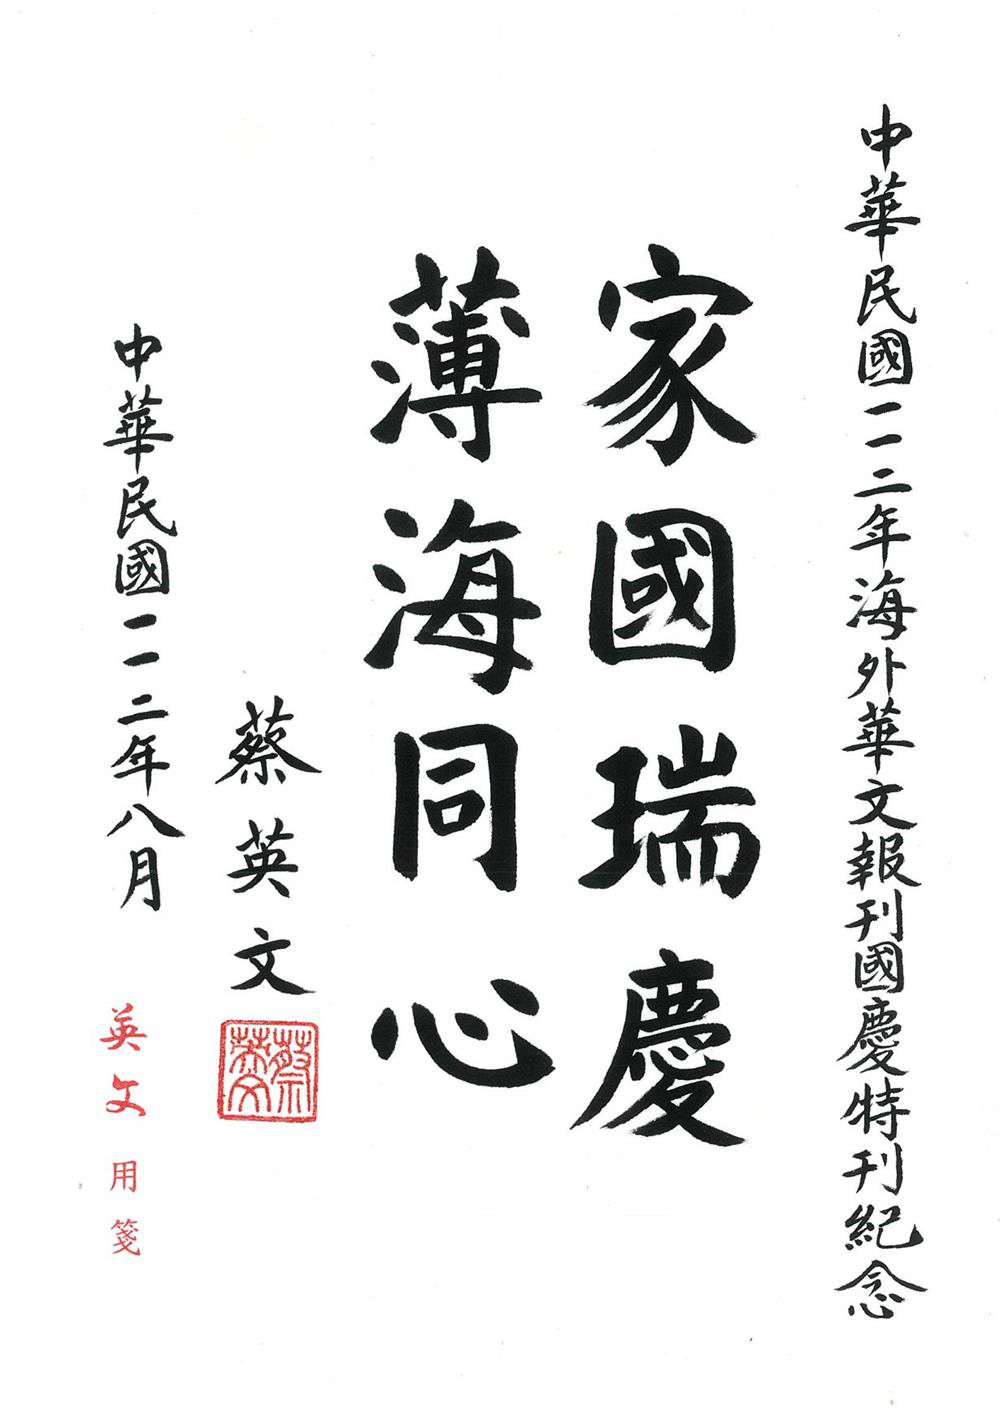 中華民國一一二年海外華文報刊國慶特刊紀念
家國瑞慶
薄海同心
蔡英文
蔡英文
中華民國一一二年八月
英文用箋